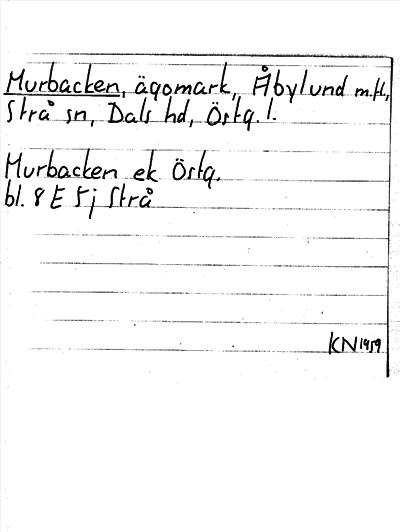 Murbacken, ägomark, Åbylund m.fl.,
Strå sn, Dals hd, Östg. l.
Murbacken ek Östg.
bl. 8 E 5j Strå
KN 1959